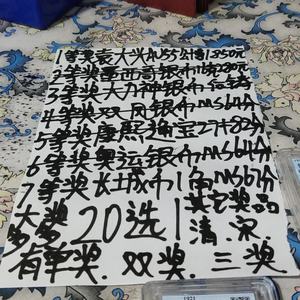 1等奖袁大头AU55分1350元
2等奖墨西哥银币
3等奖大力神银币
4等奖双凤银币MS64分
5等奖康熙通宝2升82分
6等奖奥运银币MS64分
7等奖长城币1角MS67分
大奖多多20选1其它奖品清.宋
有单奖.双奖.三奖
1921